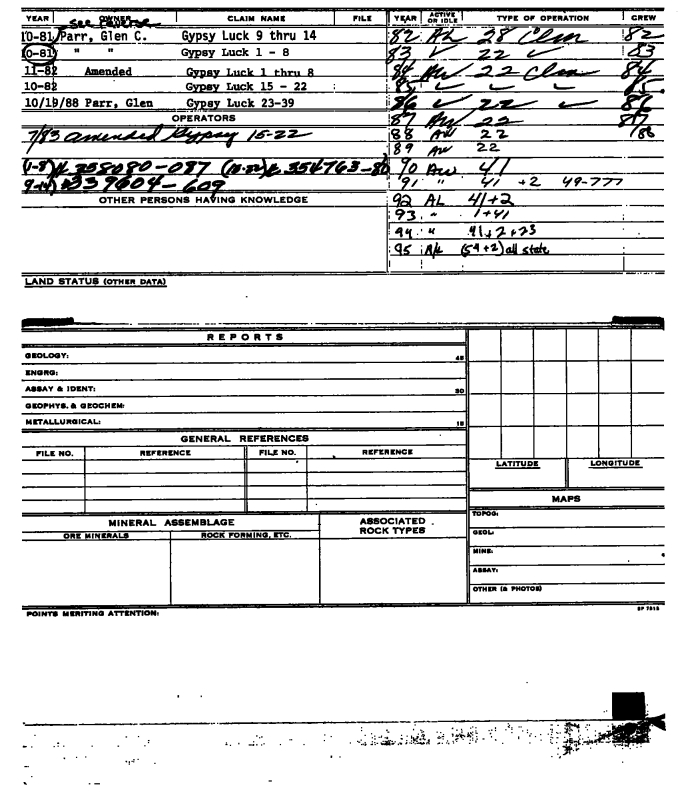 see reverse
YEAR OWNER CLAIM NAME FILE YEAR ACTIVE OR IDLE TYPE OF OPERATION CREW
10-81 Parr, Glen C. Gypsy Luck 9 thru 14 82 AL 28 Clm 82
10-81 " " Gypsy Luck 1 - 8 83 ✓ 22 ✓ 83
11-82 Amended Gypsy Luck 1 thru 8 84 AW 22 Clm 84
10-82 Gypsy Luck 15 - 22 85 ✓ ✓ ✓ 85
10/19/88 Parr, Glen Gypsy Luck 23-39 86 ✓ 22 ✓ 86
OPERATORS 87 AW 22 87
7/83 amended Gypsy 15-22 88 AW 22 /88
89 AW 22
(1-8) 358080-087 354763-80 90 AW 41
9-14) 339604-609 91 " 41 +2 49-777
OTHER PERSONS HAVING KNOWLEDGE 92 AL 41+2
93 " 1+41
94 " 41+2+23
95 (54+2) all state
LAND STATUS (OTHER DATA)
REPORTS
GEOLOGY: 45
ENGRG:
ASSAY & IDENT: 30
GEOPHYS. & GEOCHEM:
METALLURGICAL: 15
GENERAL REFERENCES
FILE NO. REFERENCE FILE NO. REFERENCE
LATITUDE LONGITUDE
MAPS
TOPOG:
MINERAL ASSEMBLAGE ASSOCIATED ROCK TYPES
ORE MINERALS ROCK FORMING, ETC.
GEOL:
MINE:
ASSAY:
OTHER (& PHOTOS)
POINTS MERITING ATTENTION: SP 7815